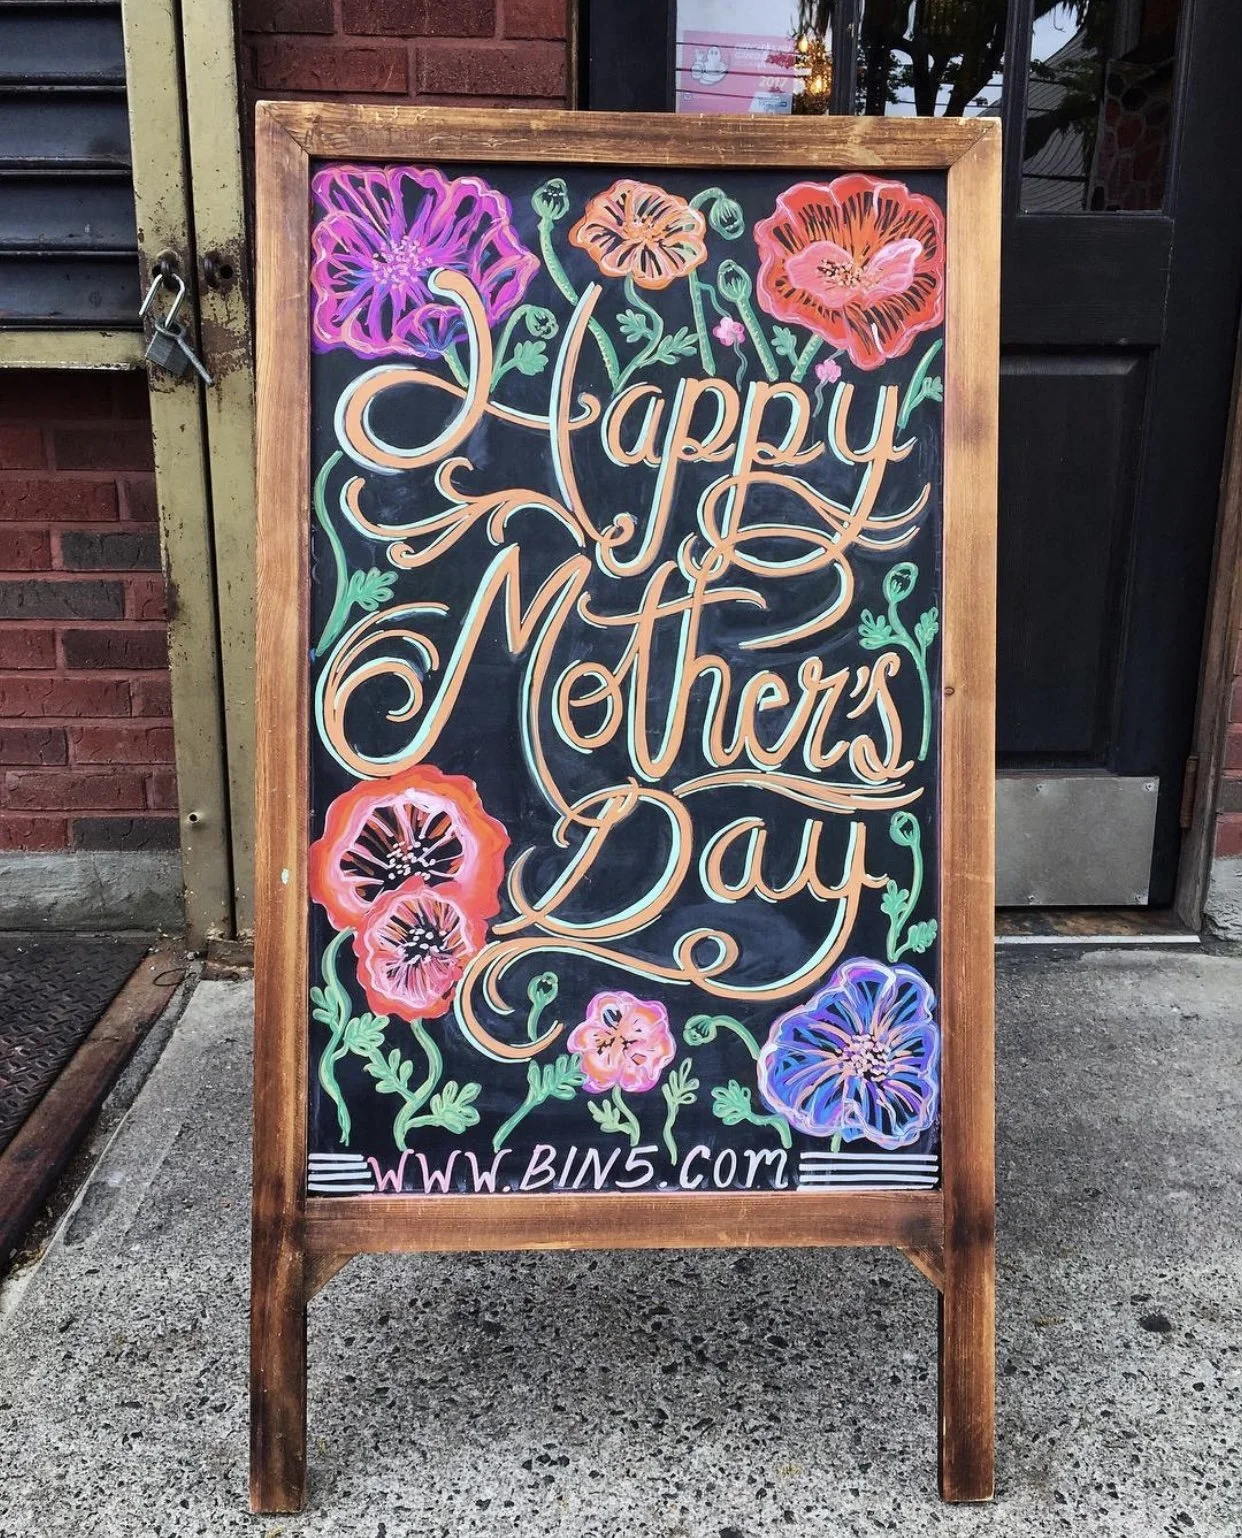 2017
Happy
Mother's
Day
WWW.BIN5.COM